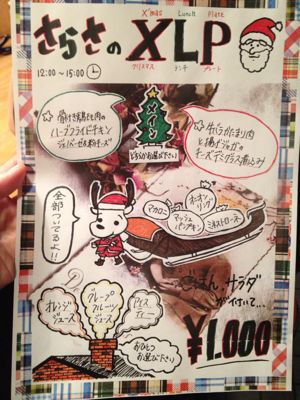 X'mas Lunch Plate
さらさの XLP
クリスマス ランチ プレート
12:00〜15:00
メイン
どちらかお選び下さい
☆骨付き鶏もも肉の
ハーブフライドチキン
☆牛バラかたまり肉
と揚げジャガの
チーズデミグラス煮込み
全部ついてるよ!!
マカロニ
マッシュ
パンプキン
オニオン
リング
ミネストローネ
ごはん、サラダ
が付いて…
¥1,000
オレンジ
ジュース
グレープ
フルーツ
ジュース
アイス
ティー
おひとつ
お選び下さい